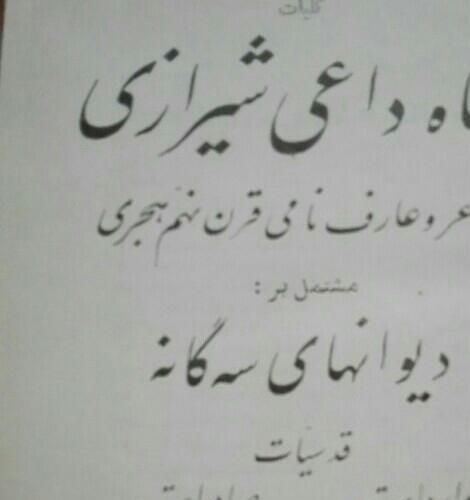 کلیات
اه داعی شیرازی
عر و عارف نامی قرن نهم هجری
مشتمل بر :
دیوانهای سه گانه
قدسیات